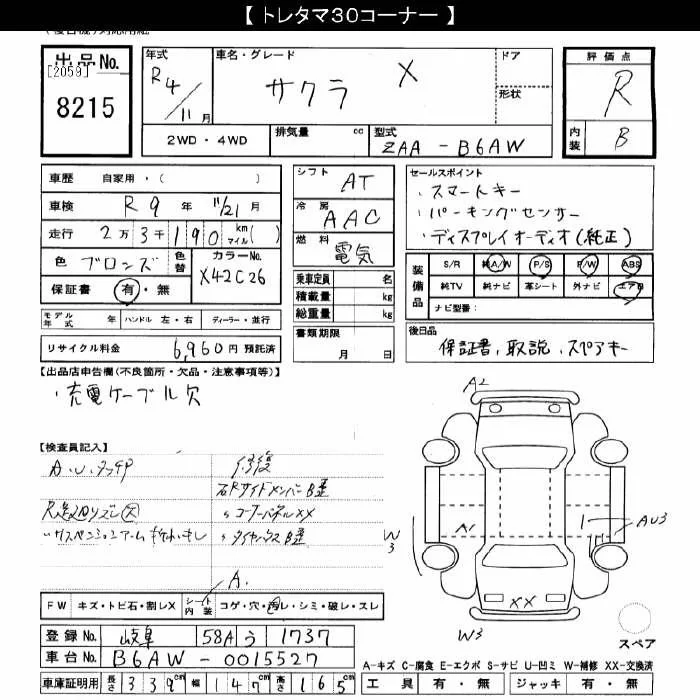 【 トレタマ30コーナー 】
出品No.
[2059]
8215
年式 R4/11月
車名・グレード サクラ X
ドア
形状
評価点 R
内装 B
2WD・4WD
排気量 cc
型式 ZAA-B6AW
車歴 自家用・( )
車検 R9年 11/21月
走行 2万3千190 km マイル( )
色 ブロンズ 色替 カラーNo. X42C26
保証書 有・無
モデル年式 年 ハンドル 左・右 ディーラー・並行
リサイクル料金 6,960円 預託済
シフト AT
冷房 AAC
燃料 電気
乗車定員 名
積載量 kg
総重量 kg
書類期限 月 日
セールスポイント
・スマートキー
・パーキングセンサー
・ディスプレイオーディオ(純正)
装備品 S/R 純A/W P/S P/W ABS
純TV 純ナビ 革シート 外ナビ エアB
ナビ型番:
後日品
保証書、取説、スペアキー
【出品店申告欄(不良箇所・欠品・注意事項等)】
・充電ケーブル欠
【検査員記入】
A.U.タッチP
修復
右Rサイドメンバー
コーナーパネルXX
A.
FW キズ・トビ石・割レX シート内装 コゲ・穴・汚レ・シミ・破レ・スレ
登録No. 岐阜 58A う 1737
車台No. B6AW-0015527
車庫証明用 長さ 339cm 幅 147cm 高さ 165cm
A2
A1
AU3
W3
XX
W3
スペア
A-キズ C-腐食 E-エクボ S-サビ U-凹ミ W-補修 XX-交換済
工具 有・無 ジャッキ 有・無